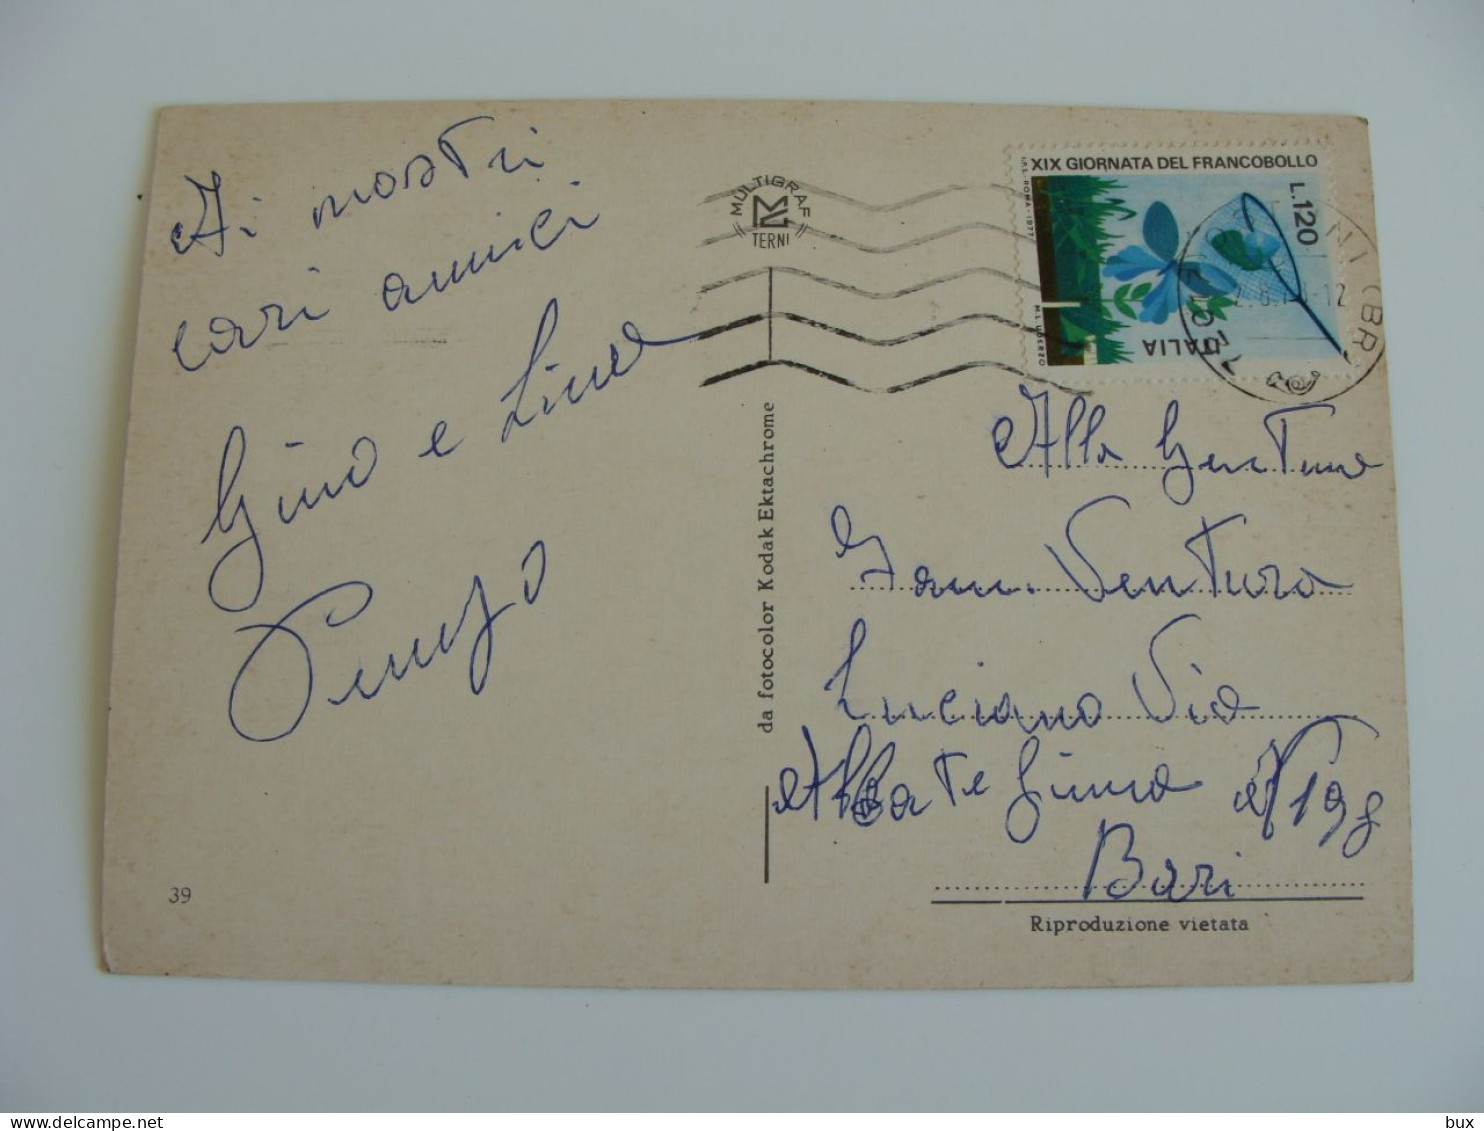 Ai nostri
cari amici
Gino e Lina
39
MULTIGRAF
TERNI
da fotocolor Kodak Ektachrome
XIX GIORNATA DEL FRANCOBOLLO
L.120
I.P.S.-ROMA-1977
ITALIA
M.L. UBERZO
(BR)
Alla Gent.ma
Fam. Ventura
Luciano Via
Abbate Gimma N° 198
Bari
Riproduzione vietata
bux